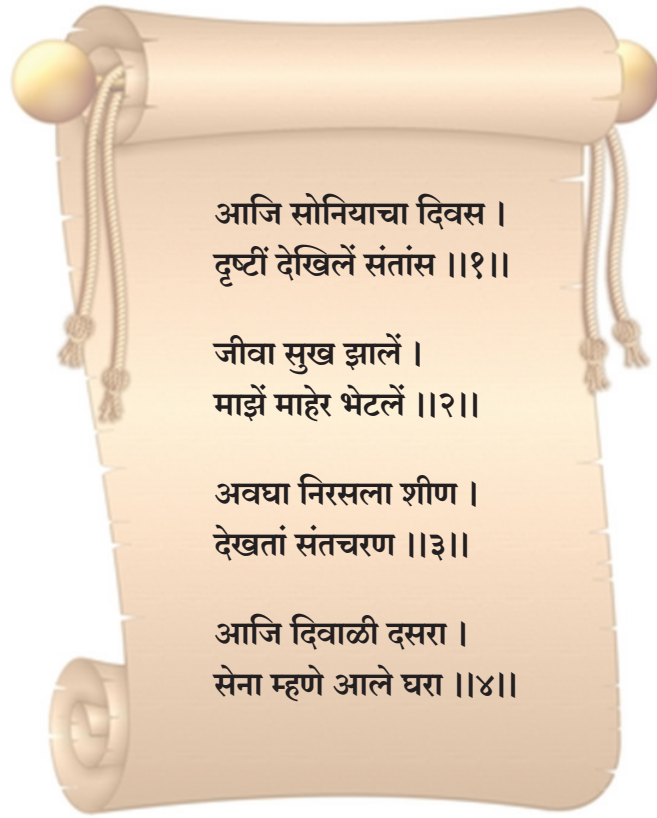 आजि सोनियाचा दिवस ।
दृष्टीं देखिलें संतांस ।।१।।
जीवा सुख झालें ।
माझें माहेर भेटलें ।।२।।
अवघा निरसला शीण ।
देखतां संतचरण ।।३।।
आजि दिवाळी दसरा ।
सेना म्हणे आले घरा ।।४।।